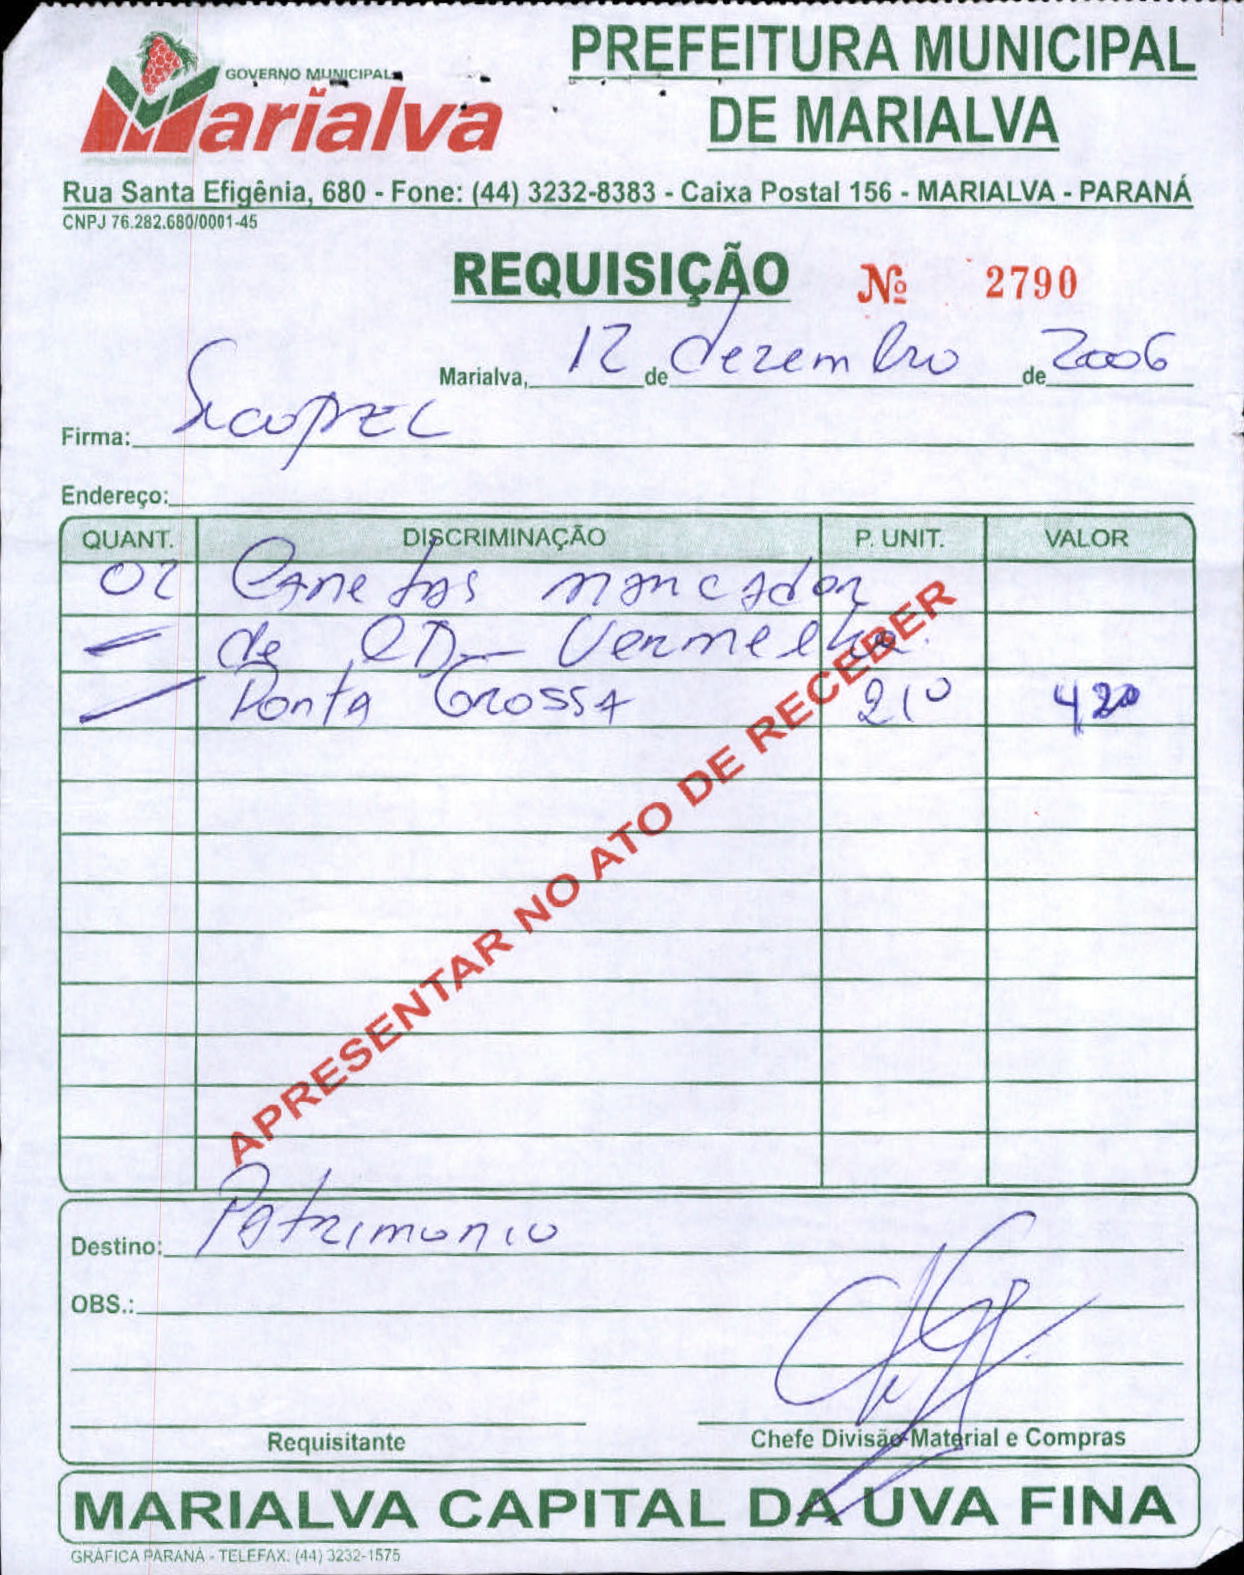 GOVERNO MUNICIPAL
Marialva
PREFEITURA MUNICIPAL
DE MARIALVA
Rua Santa Efigênia, 680 - Fone: (44) 3232-8383 - Caixa Postal 156 - MARIALVA - PARANÁ
CNPJ 76.282.680/0001-45
REQUISIÇÃO Nº 2790
Marialva, 12 de dezembro de 2006
Firma:
Endereço:
QUANT. DISCRIMINAÇÃO P. UNIT. VALOR
02 Canetas marcador
de CD - Vermelha.
Ponta Grossa 210 420
APRESENTAR NO ATO DE RECEBER
Destino: Patrimonio
OBS.:
Requisitante Chefe Divisão Material e Compras
MARIALVA CAPITAL DA UVA FINA
GRÁFICA PARANÁ - TELEFAX: (44) 3232-1575